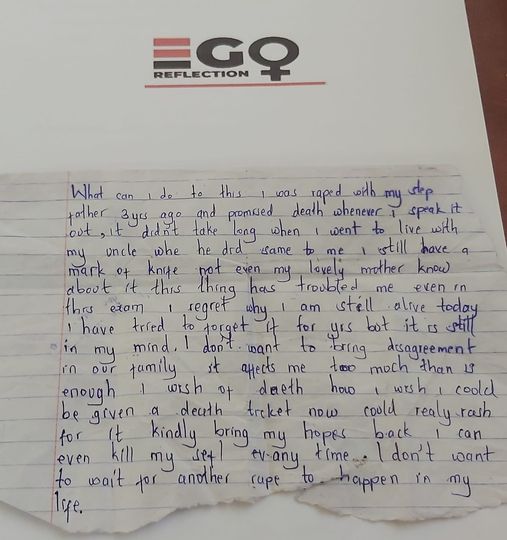 EGO
REFLECTION
What can i do to this i was raped with my step
father 3yrs ago and promised death whenever i speak it
out, it didn't take long when i went to live with
my uncle whe he did same to me i still have a
mark of knife not even my lovely mother know
about it this thing has troubled me even in
this exam i regret why i am still alive today
i have tried to forget it for yrs but it is still
in my mind. I don't want to bring disagreement
in our family it affects me too much than is
enough i wish of death how i wish i could
be given a death ticket now could realy rash
for it kindly bring my hopes back i can
even kill my self ev any time. I don't want
to wait for another rape to happen in my
life.